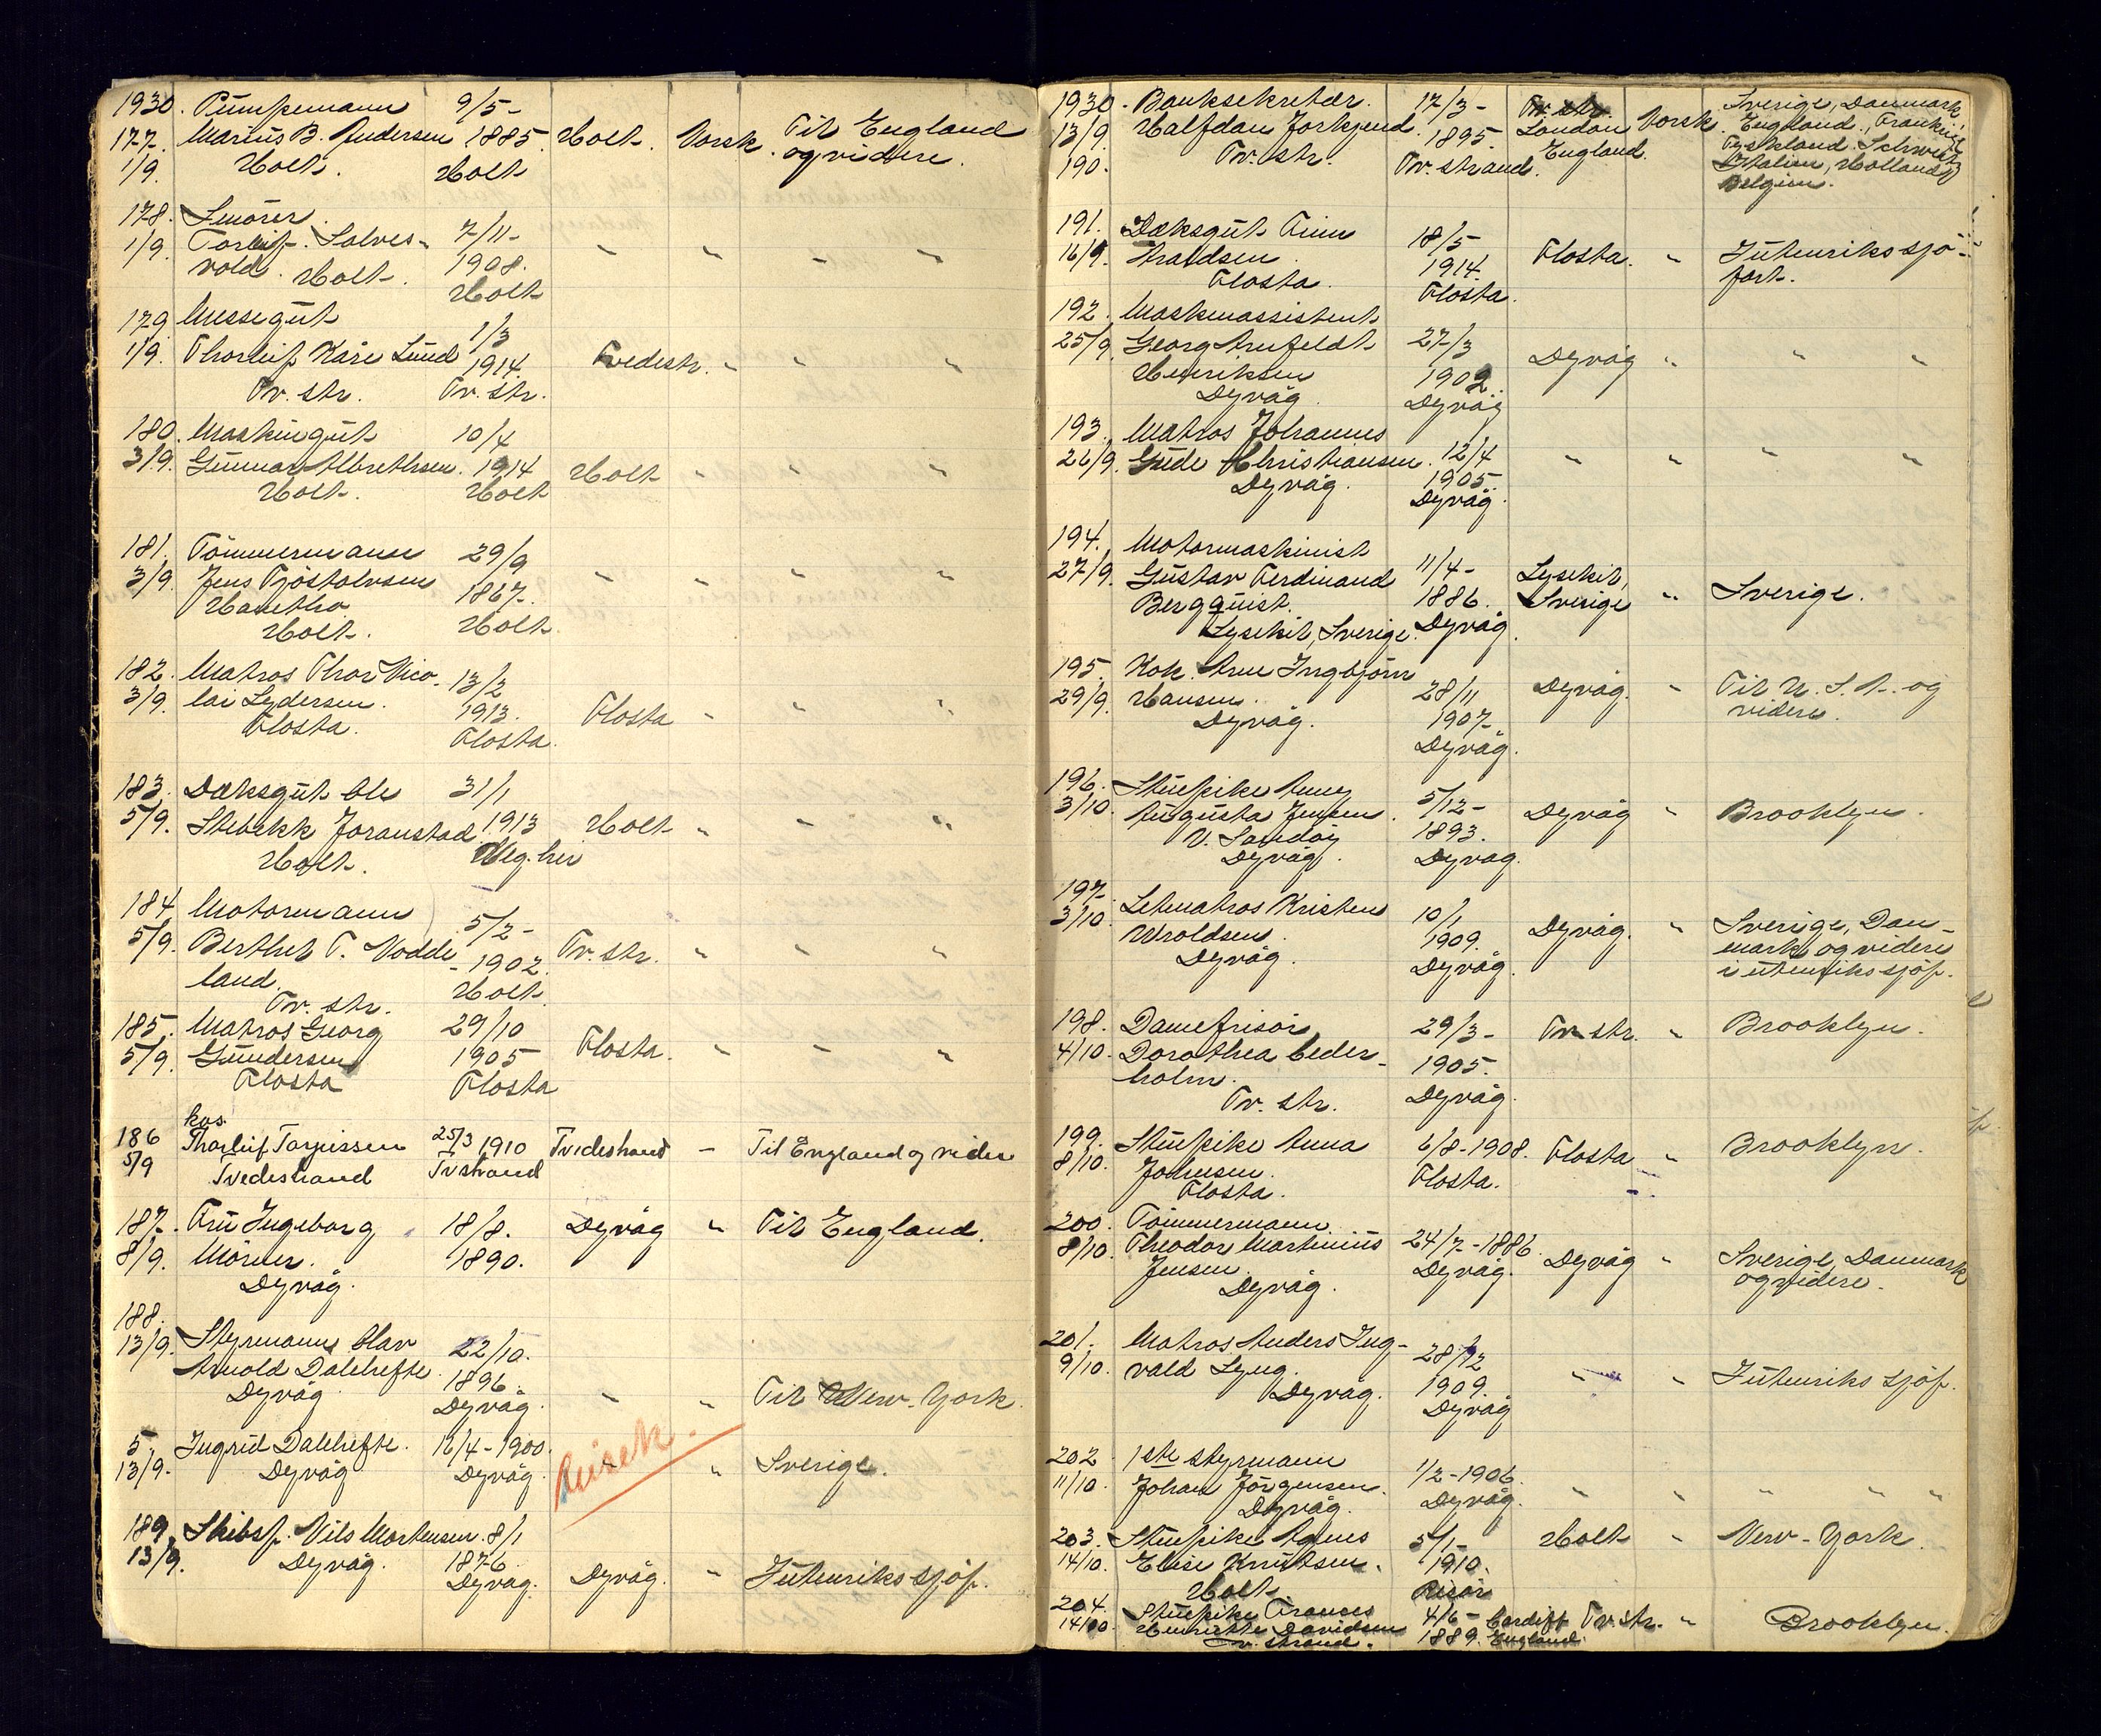 1930. Pumpemann 9/5-
177. Marius B. Andersen 1885. Holt. Norsk. Til England
1/9. Holt. Holt og videre.
178. Smører
1/9. Torleif Solves- 7/11- " " " "
vold. Holt. 1908.
Holt
179 Messegut 1/3
1/9. Thorleif Kåre Lund 1914. Tvedestr. " " "
Tv. str. Tv. str.
180. Maskingut 10/4
3/9. Gunnar Albrethsen. 1914 Holt " " "
Holt. Holt
181. Tömmermann 29/9
3/9. Jens Tjöstolvsen 1867. " " " "
Holt. Holt
182. Matros Thor Nico- 13/2
3/9. lai Lydersen. 1913. Flosta " " "
Flosta. Flosta.
183. Dæksgut Ole 31/1
5/9. Stebekk Joranstad 1913 Holt " " "
Holt. Veg.hei
184 Motormann 5/2-
5/9. Berthel T. Nodde- 1902. Tv. str. " " "
land. Holt
Tv. str.
185. Matros Georg 29/10
5/9. Gundersen 1905 Flosta. " " "
Flosta Flosta
kos.
186 Thorleif Torjussen 25/3 1910 Tvedestrand - Til England og videre
5/9 Tvedestrand Tvstrand
187. Fru Ingeborg 18/8. Dyvåg " Til England.
8/9. Mörner. 1890.
Dyvåg.
188.
13/9. Styrmann Olav 22/10.
Arnold Dalehefte. 1896.
Dyvåg Dyvåg. " " Til New-York.
5 Ingrid Dalehefte. 16/4-1900. Reisek.
13/9. Dyvåg Dyvåg. " " Sverige.
189 Skibsf. Nils Mortensen. 8/1
13/9. Dyvåg. 1876. Dyvåg. " I utenriks sjöf.
Dyvåg.
1930. Banksekretær. 17/3- Tv. str. Norsk. Sverige, Danmark,
13/9 Halfdan Jorkjend. 1895. London England, Frankrig
190. Tv. str. Tv. strand. England. Tyskland. Schweitz
Italien, Holland,
Belgien.
191. Dæksgut Finn 18/5
16/9. Araldsen. 1914. Flosta. " I utenriks sjö-
Flosta. Flosta. fart.
192. Maskinassistent
25/9. Georg Arnfeldt 27/3 Dyvåg " " "
Henriksen 1902.
Dyvåg. Dyvåg
193. Matros Johannes
26/9. Gude Christiansen. 12/4 " " " "
Dyvåg. 1905.
Dyvåg.
194. Motormaskinist
27/9. Gustav Ferdinand 11/4- Lysekil,
Bergquist. 1886. Sverige " Sverige.
Lysekil, Sverige. Dyvåg.
195. Kok Arne Ingbjörn
29/9. Hansen. 28/11 Dyvåg. " Til U. S. A. og
Dyvåg. 1907. videre.
Dyvåg.
196. Stuepike Anny
3/10. Augusta Jensen. 5/12- Dyvåg " Brooklyn.
V. Sandöy 1893.
Dyvåg. Dyvåg.
197.
3/10. Letmatros Kristen 10/1 Dyvåg. " Sverige, Dan-
Uroldsen. 1909. mark og videre
Dyvåg. Dyvåg. i utenriks sjöf.
198. Damefrisör 29/3- Tv. str. " Brooklyn.
4/10. Dorothea Ceder- 1905.
holm.
Tv. str. Dyvåg.
199. Stuepike Anna 6/8-1908. Flosta " Brooklyn.
8/10. Johnsen. Flosta.
Flosta.
200. Tömmermann
8/10. Theodor Martinius 24/7-1886. Dyvåg " Sverige, Danmark
Jensen. Dyvåg. og videre.
Dyvåg.
201. Matros Anders Ing-
9/10. vald Lyng. 28/12 " " I utenriks sjöf.
Dyvåg. 1909.
Dyvåg
202 1ste styrmann
11/10. Johan Jörgensen. 1/2-1906. " " " " "
Dyvåg. Dyvåg.
203. Stuepike Agnes 5/1- Holt " New-York.
14/10. Elise Knutsen. 1910.
Holt Risör
204. Stuepike Frances 4/6- Cardiff Tv. str. " Brooklyn.
14/10. Henriette Davidsen 1889. England.
Tv. strand.